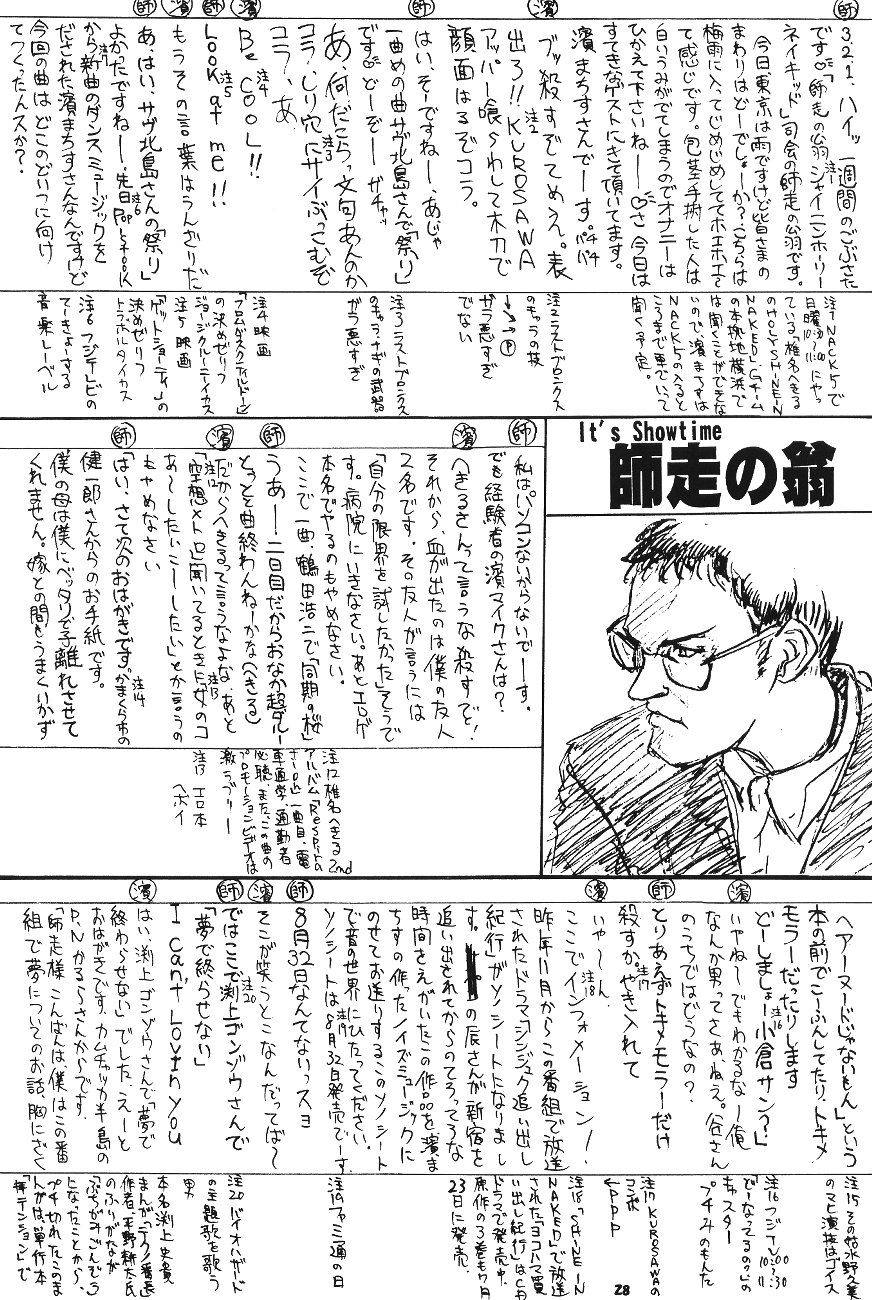 師
3 2 1、ハイッ 一週間のごぶさた
です♡「師走の翁シャイニンホーリー
ネイキッド」司会の師走の翁です。
今日東京は雨ですけど皆さまの
まわりはどーでしょーか?こちらは
梅雨に入ってじめじめしててホエホエ〜
て感じです。包茎手術した人は
白いうみがでてしまうのでオナニーは
ひかえて下さいねー♡さ 今日は
すてきなゲストにきて頂いてます。
濱まちすさんでーす。パチパチ
濱
ブッ殺すぞてめえ。表
出ろ!!KUROSAWA
アッパー喰らわして木刀で
顔面はるぞコラ。
師
はい、そーですねー、あじゃ
一曲めの曲サヴ北島さんで「祭り」
です♡どーぞー ガチャッ
濱
あ、何だこらっ文句あんのか
コラ、しり穴にサイぶっこむぞ
コラ、あ
Be COOL!!
師
Look at me!!
濱
もうその言葉はうんざりだ
師
あ、はい、サヴ北島さんの「祭り」
よかったですねー、先日Pop stock
から新曲のダンスミュージックを
だされた濱まちすさんなんですけど
今回の曲はどこのどいつに向け
てつくったんスか?
注1 NACK5で
日曜10:30〜11:00にやっ
ている椎名へきる
のHOLY SHINE IN
NAKED。Gチーム
の本拠地横浜で
は聞くことができな
いので濱まちすは
NACK5の入ると
ころまで車でいって
聞く予定。
注2 ラストブロンクス
のキャラの技
↓↘→Ⓟ
ガラ悪すぎ
でない
注3 ラストブロンクス
のキャラナギの武器
ガラ悪すぎ
注4 映画
「フロムダスクティルドーン」
の決めゼリフ
ジョージクルーニーイカス
注5 映画
「ゲットショーティ」の
決めゼリフ
トラボルタイカス
注6 フジテレビの
てーきょーする
音楽レーベル
It's Showtime
師走の翁
師
私はパソコンないからないでーす。
でも経験者の濱マイクさんは?
濱
へきるさんって言うな殺すぞ!
それから、血が出たのは僕の友人
2名です。その友人が言うには
「自分の限界を試したかった」そうで
す。病院にいきなさい。あとエロゲ
本名でやるのもやめなさい。
ここで一曲、鶴田浩二で「同期の桜」
師
うあー!二日目だからおなか超ダルー
とっとと曲終わんねーかな(へきる)
濱
だからへきるって言うなよな、あと
「空想メトロ」聞いてるときに女のコ
あ〜したいこーしたい」とか言うの
もやめなさい
師
「はい、さて次のおはがきです。かまくら市の
健一郎さんからのお手紙です。
僕の母は僕にベッタリで子離れさせて
くれません。嫁との間もうまくいかず
注12 椎名へきる2nd
アルバム「Respiration」
一曲目、電
車通学、通勤者
必聴。またこの曲の
プロモーションビデオは
激ラブリー
注13 エロ本
注14
ヘボイ
ヘアーヌードじゃないもん」という
本の前でこーふんしてたり、トキメ
モラーだったりします
どーしましょー小倉サン?」
濱
いやね〜でもわかるなー俺
なんか男ってさあ、ねえ。谷さん
のうちではどうなの?
師
とりあえずトキメモラーだけ
殺すか。やき入れて
濱
いや〜ん。
ここでインフォメーション!
昨年11月からこの番組で放送
されたドラマ「シンジュク追い出し
紀行」がソノシートになりまし
す。の辰さんが新宿を
追い出されてからのてろってろな
時間をえがいたこの作品を濱ま
ちすの作ったノイズミュージックに
のせてお送りするこのソノシート
で音の世界にひたってください。
ソノシートは8月32日発売でーす
師
8月32日なんてないっスヨ
濱
そこが笑うとこなんだってば〜
師
ではここで渕上ゴンゾウさんで
「夢で終らせない」
I can't Lovin you
濱
はい、渕上ゴンゾウさんで「夢で
終わらせない」でした、えーと
おはがきです、カムチャッカ半島の
P.Nかるらさんからです。
「師走様こんばんは僕はこの番
組で夢についてのお話、胸にざく
注15 その姑水野久美
のマヒ演技はゴイス
注16 フジテレビ10:00〜11:30
「どーなってるの!?」の
キャスター
プチみのもんた
注17 KUROSAWAの
コンボ
←PPP
注18 「SHINE IN
NAKED」で放送
された「ヨコハマ買
い出し紀行」はCD
ドラマで発売中、
原作の3巻も7月
23日に発売。
注19 ファミ通の日
注20 バイオハザード
の主題歌を歌う
男
本名渕上史貴
まんが「テクノ番長」
作者・平野耕太氏
のふりがなが
「ふちがみごんぞう」
となったことから、
プチ切れたこのま
んがは、単行本
「拝テンション」で
28